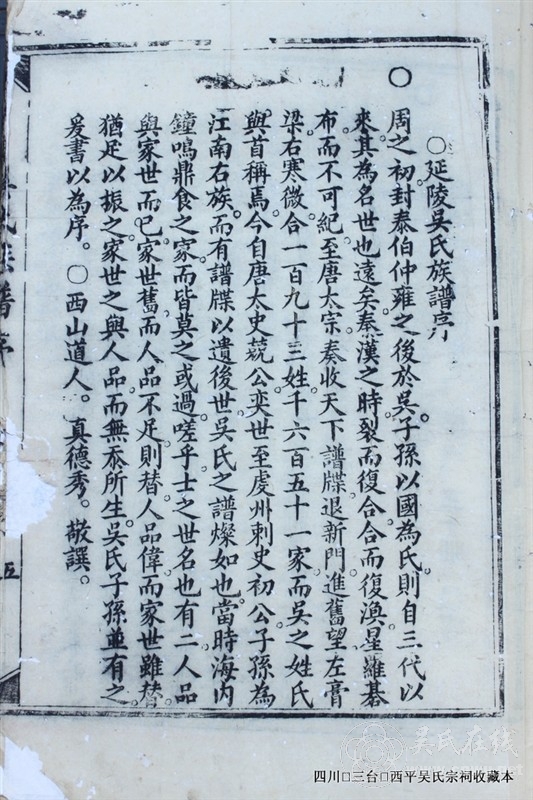 ○延陵吳氏族譜序
周之初封泰伯仲雍之後於吳子孫以國為氏則自三代以
來其為名世也遠矣秦漢之時裂而復合合而復渙星羅碁
布而不可紀至唐太宗奏收天下譜牒退新門進舊望左膏
梁右寒微合一百九十三姓千六百五十一家而吳之姓氏
與首稱焉今自唐太史兢公奕世至虔州刺史初公子孫為
江南右族而有譜牒以遺後世吳氏之譜燦如也當時海內
鐘鳴鼎食之家而皆莫之或過嗟乎士之世名也有二人品
與家世而已家世舊而人品不足則替人品偉而家世雖替
猶足以振之家世之與人品而無忝所生吳氏子孫並有之
爰書以為序。○西山道人。真德秀。敬譔。
族譜序
五
吴氏在线
四川□三台□西平吴氏宗祠收藏本